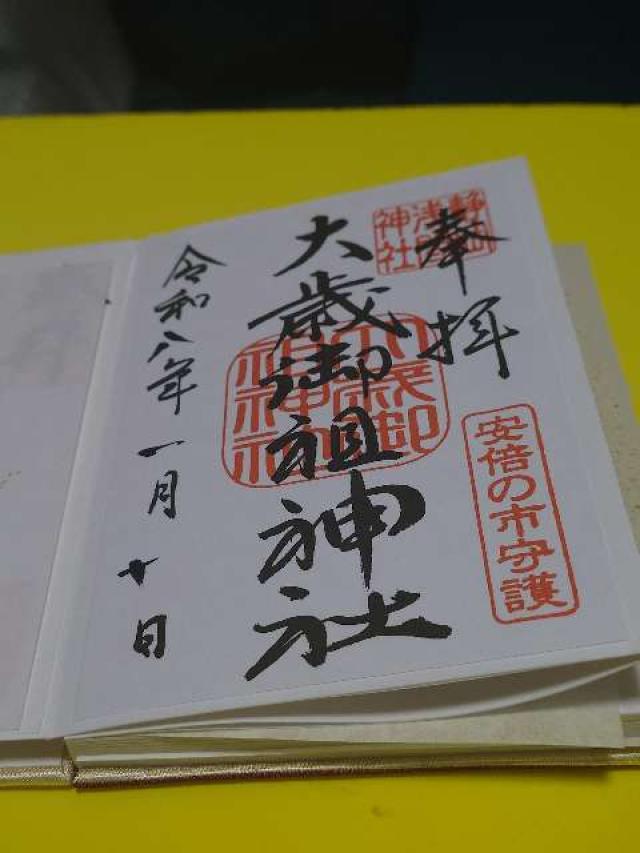 奉拝
静岡浅間神社
安倍の市守護
大歳御祖神社
大歳御祖神社
令和八年一月十日